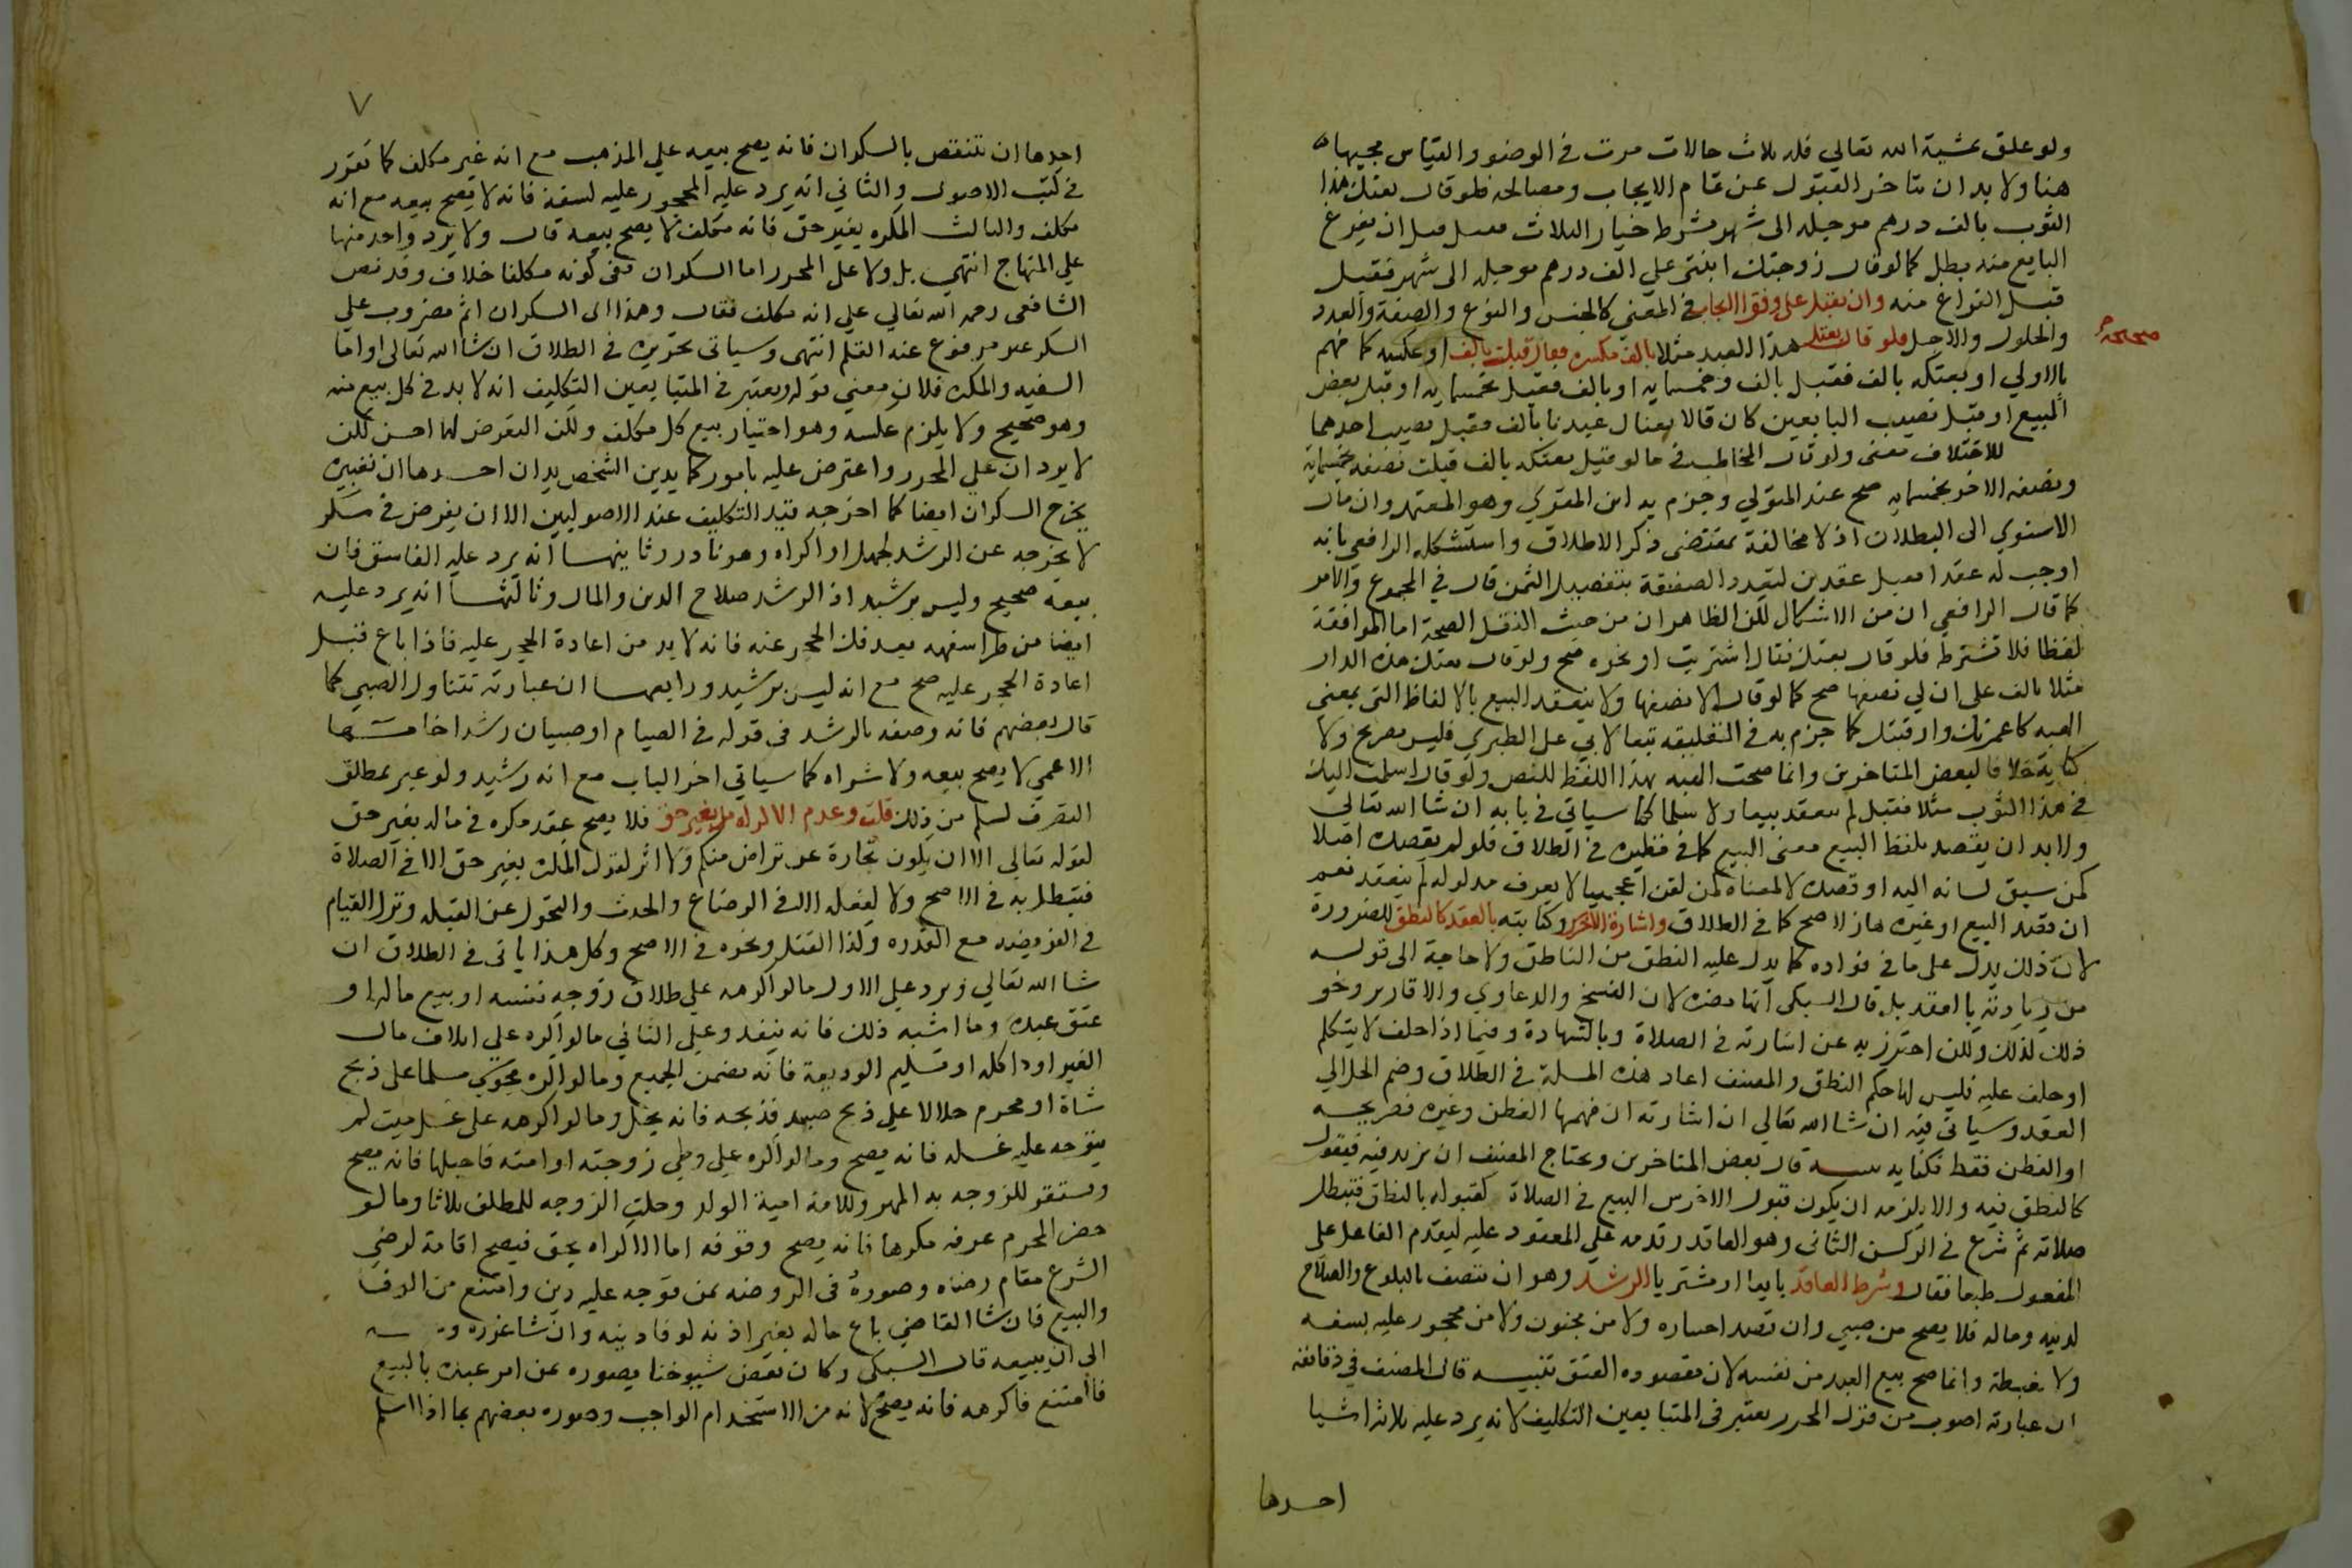 ولو علق بمشية الله تعالي فله ثلاث حالات مرت في الوضو والقياس مجيها
هنا ولا بد ان يتاخر القبول عن تمام الايجاب ومصالحه فلو قال بعتك هذا
الثوب بالف درهم موجله الى شهر بشرط خيار الثلاث فقبل قبل ان يفرغ
البايع منه بطل كما لو قال زوجتك ابنتي علي الف درهم موجله الى شهر فقبل
قبل الفراغ منه وان يقبل على وفق الايجاب في المعني كالجنس والنوع والصفة والعدد
والحلول والاجل فلو قال بعتك هذا العبد مثلا بالف مكسره فقال قبلت بالف او عكسه كما فهم
بالاولي او بعتكه بالف فقبل بالف وخمسمايه او بالف فقبل بخمسمايه او قبل بعض
المبيع او قبل نصيب البايعين كان قالا بعناك عبدنا بالف فقبل نصيب احدهما
للاختلاف معنى ولو قال المخاطب في ما لو قيل بعتكه بالف قبلت نصفه بخمسمايه
ونصفه الاخر بخمسمايه صح عند المتولي وجزم به ابن المقري وهو المعتمد وان مال
الاسنوي الى البطلان اذ لا مخالفة بمقتضى ذكر الاطلاق واستشكله الرافعي بانه
اوجب له عقدا فقبل عقدين لتعدد الصفقة بتفصيل الثمن قال في المجموع والامر
كما قال الرافعي ان من الاشكال لكن الظاهر ان من حيث النقل الصحة اما الموافقة
لفظا فلا تشترط فلو قال بعتك فقال اشتريت او نحوه صح ولو قال بعتك هذه الدار
مثلا بالف على ان لي نصفها صح كما لو قال الا نصفها ولا ينعقد البيع بالالفاظ التى بمعني
الهبه كاعمرتك وارقبتك كما جزم به في التعليقه تبعا لابي علي الطبري فليس صريح ولا
كناية خلافا لبعض المتاخرين وانما صحت الهبه بهذا اللفظ للنص ولو قال اسلمت اليك
في هذا الثوب مثلا فقبل لم ينعقد بيعا ولا سلما كما سياتي في بابه ان شا الله تعالي
ولا بد ان يقصد بلفظ البيع معنى البيع كما في نظيره في الطلاق فلو لم يقصده اصلا
كمن سبق لسانه اليه او قصده لا لمعناه كمن لقن اعجميا لا يعرف مدلوله لم ينعقد نعم
ان قصد البيع او غيره هازلا صح كما في الطلاق واشارة الاخرس وكتابته بالعقد كالنطق للضرورة
لان ذلك يدل على ما في فواده كما يدل عليه النطق من الناطق ولا حاجة الى قوله
من زيادته بالعقد بل قال السبكى انها مضره لان الفسخ والدعاوي والاقارير ونحو
ذلك كذلك ولكن احترز به عن اشارته في الصلاة وبالشهادة وفيما اذا حلف لا يتكلم
او حلف عليه فليس لها حكم النطق والمصنف اعاد هذه المسلة في الطلاق وضم الحل الي
العقد وسياتي فيه ان شا الله تعالي ان اشارته ان فهمها الفطن وغيره فصريحه
او الفطن فقط فكنايه تنبيه قال بعض المتاخرين ويحتاج المصنف ان يزيد فيه فيقول
كالنطق فيه والا يلزمه ان يكون قبول الاخرس البيع في الصلاة كقبوله بالنطق فتبطل
صلاته ثم شرع في الركن الثانى وهو العاقد وقدمه علي المعقود عليه لتقدم الفاعل على
المفعول طبعا فقال وشرط العاقد بايعا او مشتريا الرشد وهو ان يتصف بالبلوغ والصلاح
لدينه وماله فلا يصح من صبي وان قصد اختباره ولا من مجنون ولا من محجور عليه بسفه
ولا بغبطة وانما صح بيع العبد من نفسه لان مقصوده العتق تنبيه قال المصنف في دقائقه
ان عبارته اصوب من قول المحرر يعتبر في المتبايعين التكليف لانه يرد عليه ثلاثة اشيا
احدها
٧
احدها ان ينتقص بالسكران فانه يصح بيعه علي المذهب مع انه غير مكلف كما تقرر
في كتب الاصول والثاني انه يرد عليه المحجور عليه لسفه فانه لا يصح بيعه مع انه
مكلف والثالث المكره بغير حق فانه مكلف لا يصح بيعه قال ولا يرد واحد منها
علي المنهاج انتهي بل ولا على المحرر اما السكران ففى كونه مكلفا خلاف وقد نص
الشافعى رحمه الله تعالي علي انه مكلف فقال وهذا اى السكران اثم مضروب علي
السكر غير مرفوع عنه القلم انتهى وسياتى تحريره في الطلاق ان شا الله تعالى واما
السفيه والمكره فلان معني قوله ويعتبر في المتبايعين التكليف انه لا بد في كل بيع منه
وهو صحيح ولا يلزم عكسه وهو اعتبار بيع كل مكلف ولكن التعرض لهما احسن لكن
لا يردان علي المحرر واعترض عليه بامور كما يدين الشخص يدان احدها ان تعبيره
يخرج السكران ايضا كما اخرجه قيد التكليف عند الاصوليين الا ان يفرض في سكر
لا يخرجه عن الرشد لجهل او اكراه وهو نادر وثانيهما انه يرد عليه الفاسق فان
بيعه صحيح وليس برشيد اذ الرشد صلاح الدين والمال وثالثها انه يرد عليه
ايضا من طرا سفهه بعد فك الحجر عنه فانه لا بد من اعادة الحجر عليه فاذا باع قبل
اعادة الحجر عليه صح مع انه ليس برشيد ورابعها ان عبارته تتناول الصبي كما
قال بعضهم فانه وصفه بالرشد في قوله في الصيام او صبيان رشدا خامسها
الاعمي لا يصح بيعه ولا شراه كما سياتي اخر الباب مع انه رشيد ولو عبر بمطلق
التصرف لسلم من ذلك قلت وعدم الاكراه بغير حق فلا يصح عقد مكره في ماله بغير حق
لقوله تعالي الا ان تكون تجارة عن تراض منكم ولا اثر لقول المكره بغير حق الا في الصلاة
فتبطل به في الاصح ولا لفعله الا في الرضاع والحدث والتحول عن القبله وترك القيام
في الفريضه مع القدره وكذا القتل ونحوه في الاصح وكل هذا ياتى في الطلاق ان
شا الله تعالي ويرد علي الاول ما لو اكرهه علي طلاق زوجة نفسه او بيع ماله او
عتق عبده وما اشبه ذلك فانه ينفد وعلي الثاني ما لو اكره علي اتلاف مال
الغير او اكله او تسليم الوديعة فانه يضمن الجميع وما لو اكره مجوسي مسلما على ذبح
شاة او محرم حلالا علي ذبح صيد فذبحه فانه يحل وما لو اكرهه على غسل ميت لم
يتوجه عليه غسله فانه يصح وما لو اكره علي وطي زوجته او امته فاحبلها فانه يصح
ويستقر للزوجه به المهر وللامة امية الولد وحلت الزوجه للمطلق ثلاثا وما لو
حضر المحرم عرفه مكرها فانه يصح وقوفه اما الاكراه بحق فيصح اقامة لرضي
الشرع مقام رضاه وصوره في الروضه بمن توجه عليه دين وامتنع من الوفا
والبيع فان شا القاضي باع ماله بغير اذنه لوفا دينه وان شا عزره
الى ان يبيعه قال السبكى وكان بعض شيوخنا يصوره عن امر عبده بالبيع
فامتنع فاكرهه فانه يصح لانه من الاستخدام الواجب وصوره بعضهم بما اذا اسلم